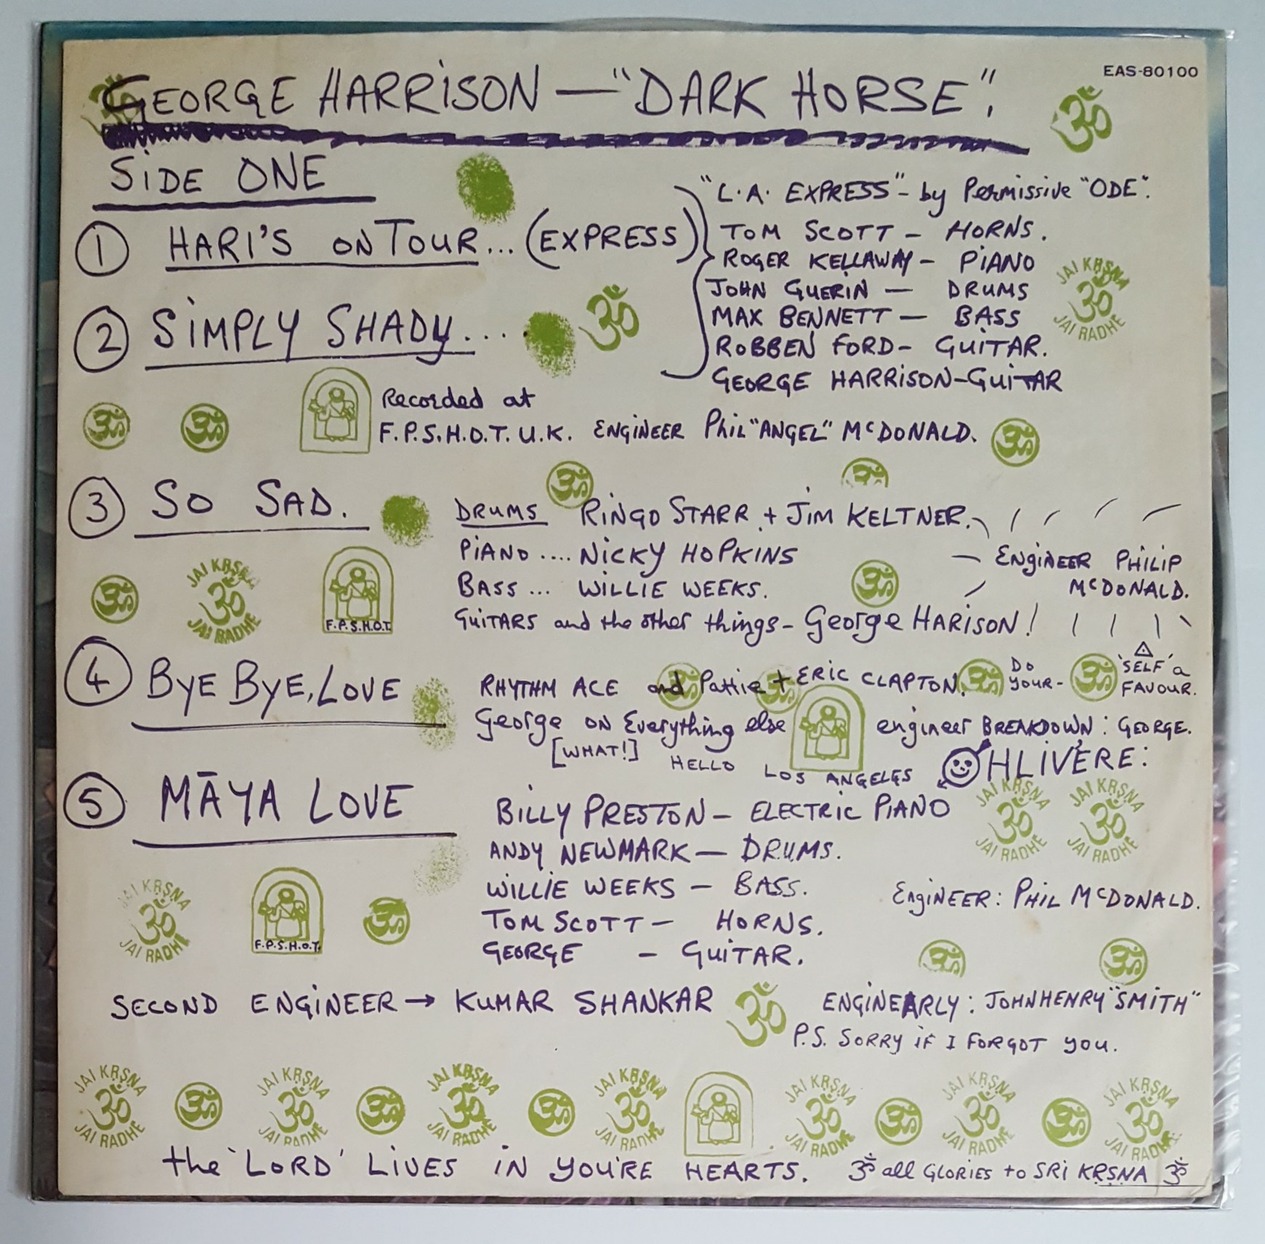 EAS-80100
GEORGE HARRISON — "DARK HORSE".
SIDE ONE
① HARI'S ON TOUR... (EXPRESS)
"L.A. EXPRESS" - by Permissive "ODE".
TOM SCOTT - HORNS.
ROGER KELLAWAY - PIANO
JOHN GUERIN — DRUMS
MAX BENNETT — BASS
ROBBEN FORD - GUITAR.
GEORGE HARRISON - GUITAR
② SIMPLY SHADY...
ॐ
JAI KRSNA
ॐ
JAI RADHE
Recorded at
F.P.S.H.O.T. U.K. ENGINEER Phil "ANGEL" McDONALD.
③ SO SAD.
DRUMS RINGO STARR + JIM KELTNER.
PIANO .... NICKY HOPKINS
BASS ... WILLIE WEEKS.
GUITARS and the other things - George HARISON!
ENGINEER PHILIP
McDONALD.
JAI KRSNA
ॐ
JAI RADHE
F.P.S.H.O.T.
④ BYE BYE, LOVE
RHYTHM ACE and Pattie + ERIC CLAPTON.
DO YOUR- 'SELF' a FAVOUR.
George on Everything else
engineer BREAKDOWN: GEORGE.
[WHAT!] HELLO LOS ANGELES
OHLIVERE:
⑤ MĀYA LOVE
BILLY PRESTON - ELECTRIC PIANO
ANDY NEWMARK — DRUMS.
WILLIE WEEKS - BASS.
TOM SCOTT - HORNS.
GEORGE - GUITAR.
JAI KRSNA ॐ JAI RADHE
JAI KRSNA ॐ JAI RADHE
ENGINEER: PHIL McDONALD.
JAI KRSNA
ॐ
JAI RADHE
F.P.S.H.O.T.
SECOND ENGINEER → KUMAR SHANKAR
ॐ
ENGINEARLY: JOHNHENRY "SMITH"
P.S. SORRY iF I FORGOT you.
JAI KRSNA ॐ JAI RADHE
ॐ
JAI KRSNA ॐ JAI RADHE
ॐ
JAI KRSNA ॐ JAI RADHE
ॐ
JAI KRSNA ॐ JAI RADHE
JAI KRSNA ॐ JAI RADHE
ॐ
JAI KRSNA ॐ JAI RADHE
ॐ
JAI KRSNA ॐ JAI RADHE
the 'LORD' LIVES IN YOU'RE HEARTS. ॐ all GLORIES to SRI KRSNA ॐ